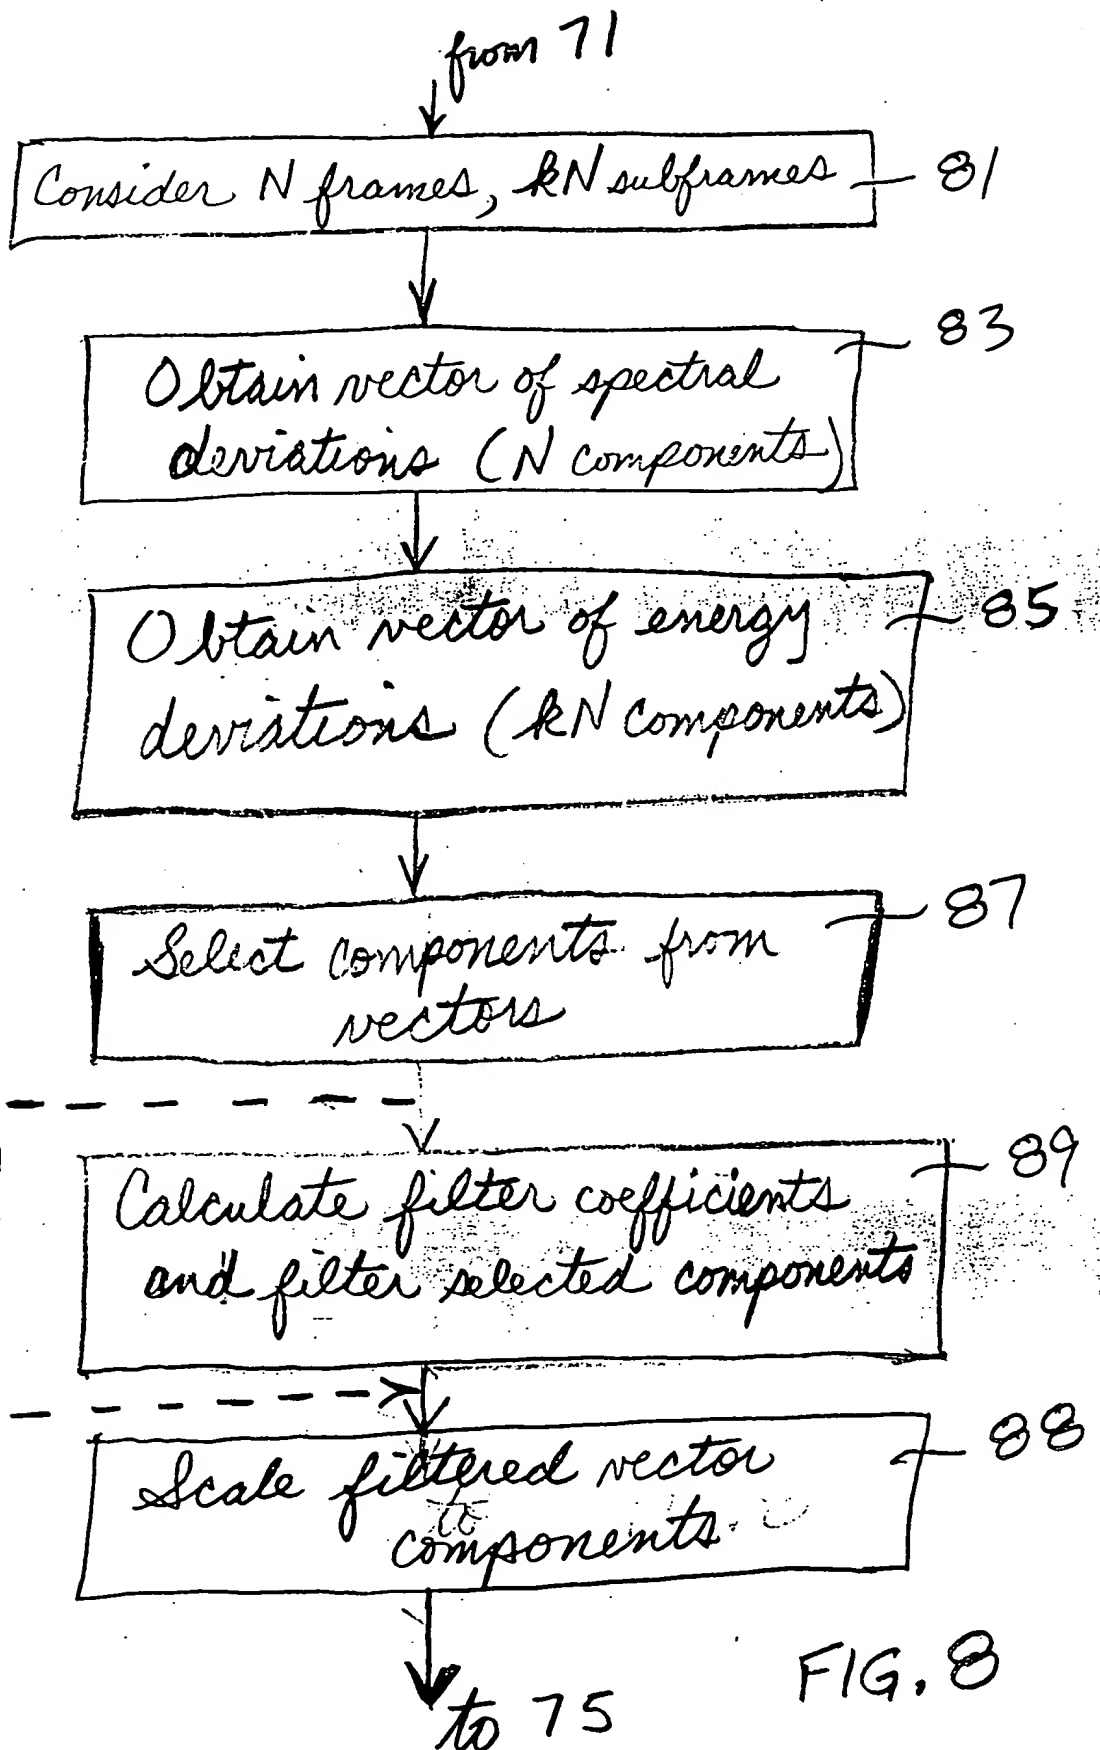 from 71
Consider N frames, kN subframes
81
83
Obtain vector of spectral
deviations (N components)
85
Obtain vector of energy
deviations (kN components)
87
Select components from
vectors
89
Calculate filter coefficients
and filter selected components
88
Scale filtered vector
components
to 75
FIG. 8